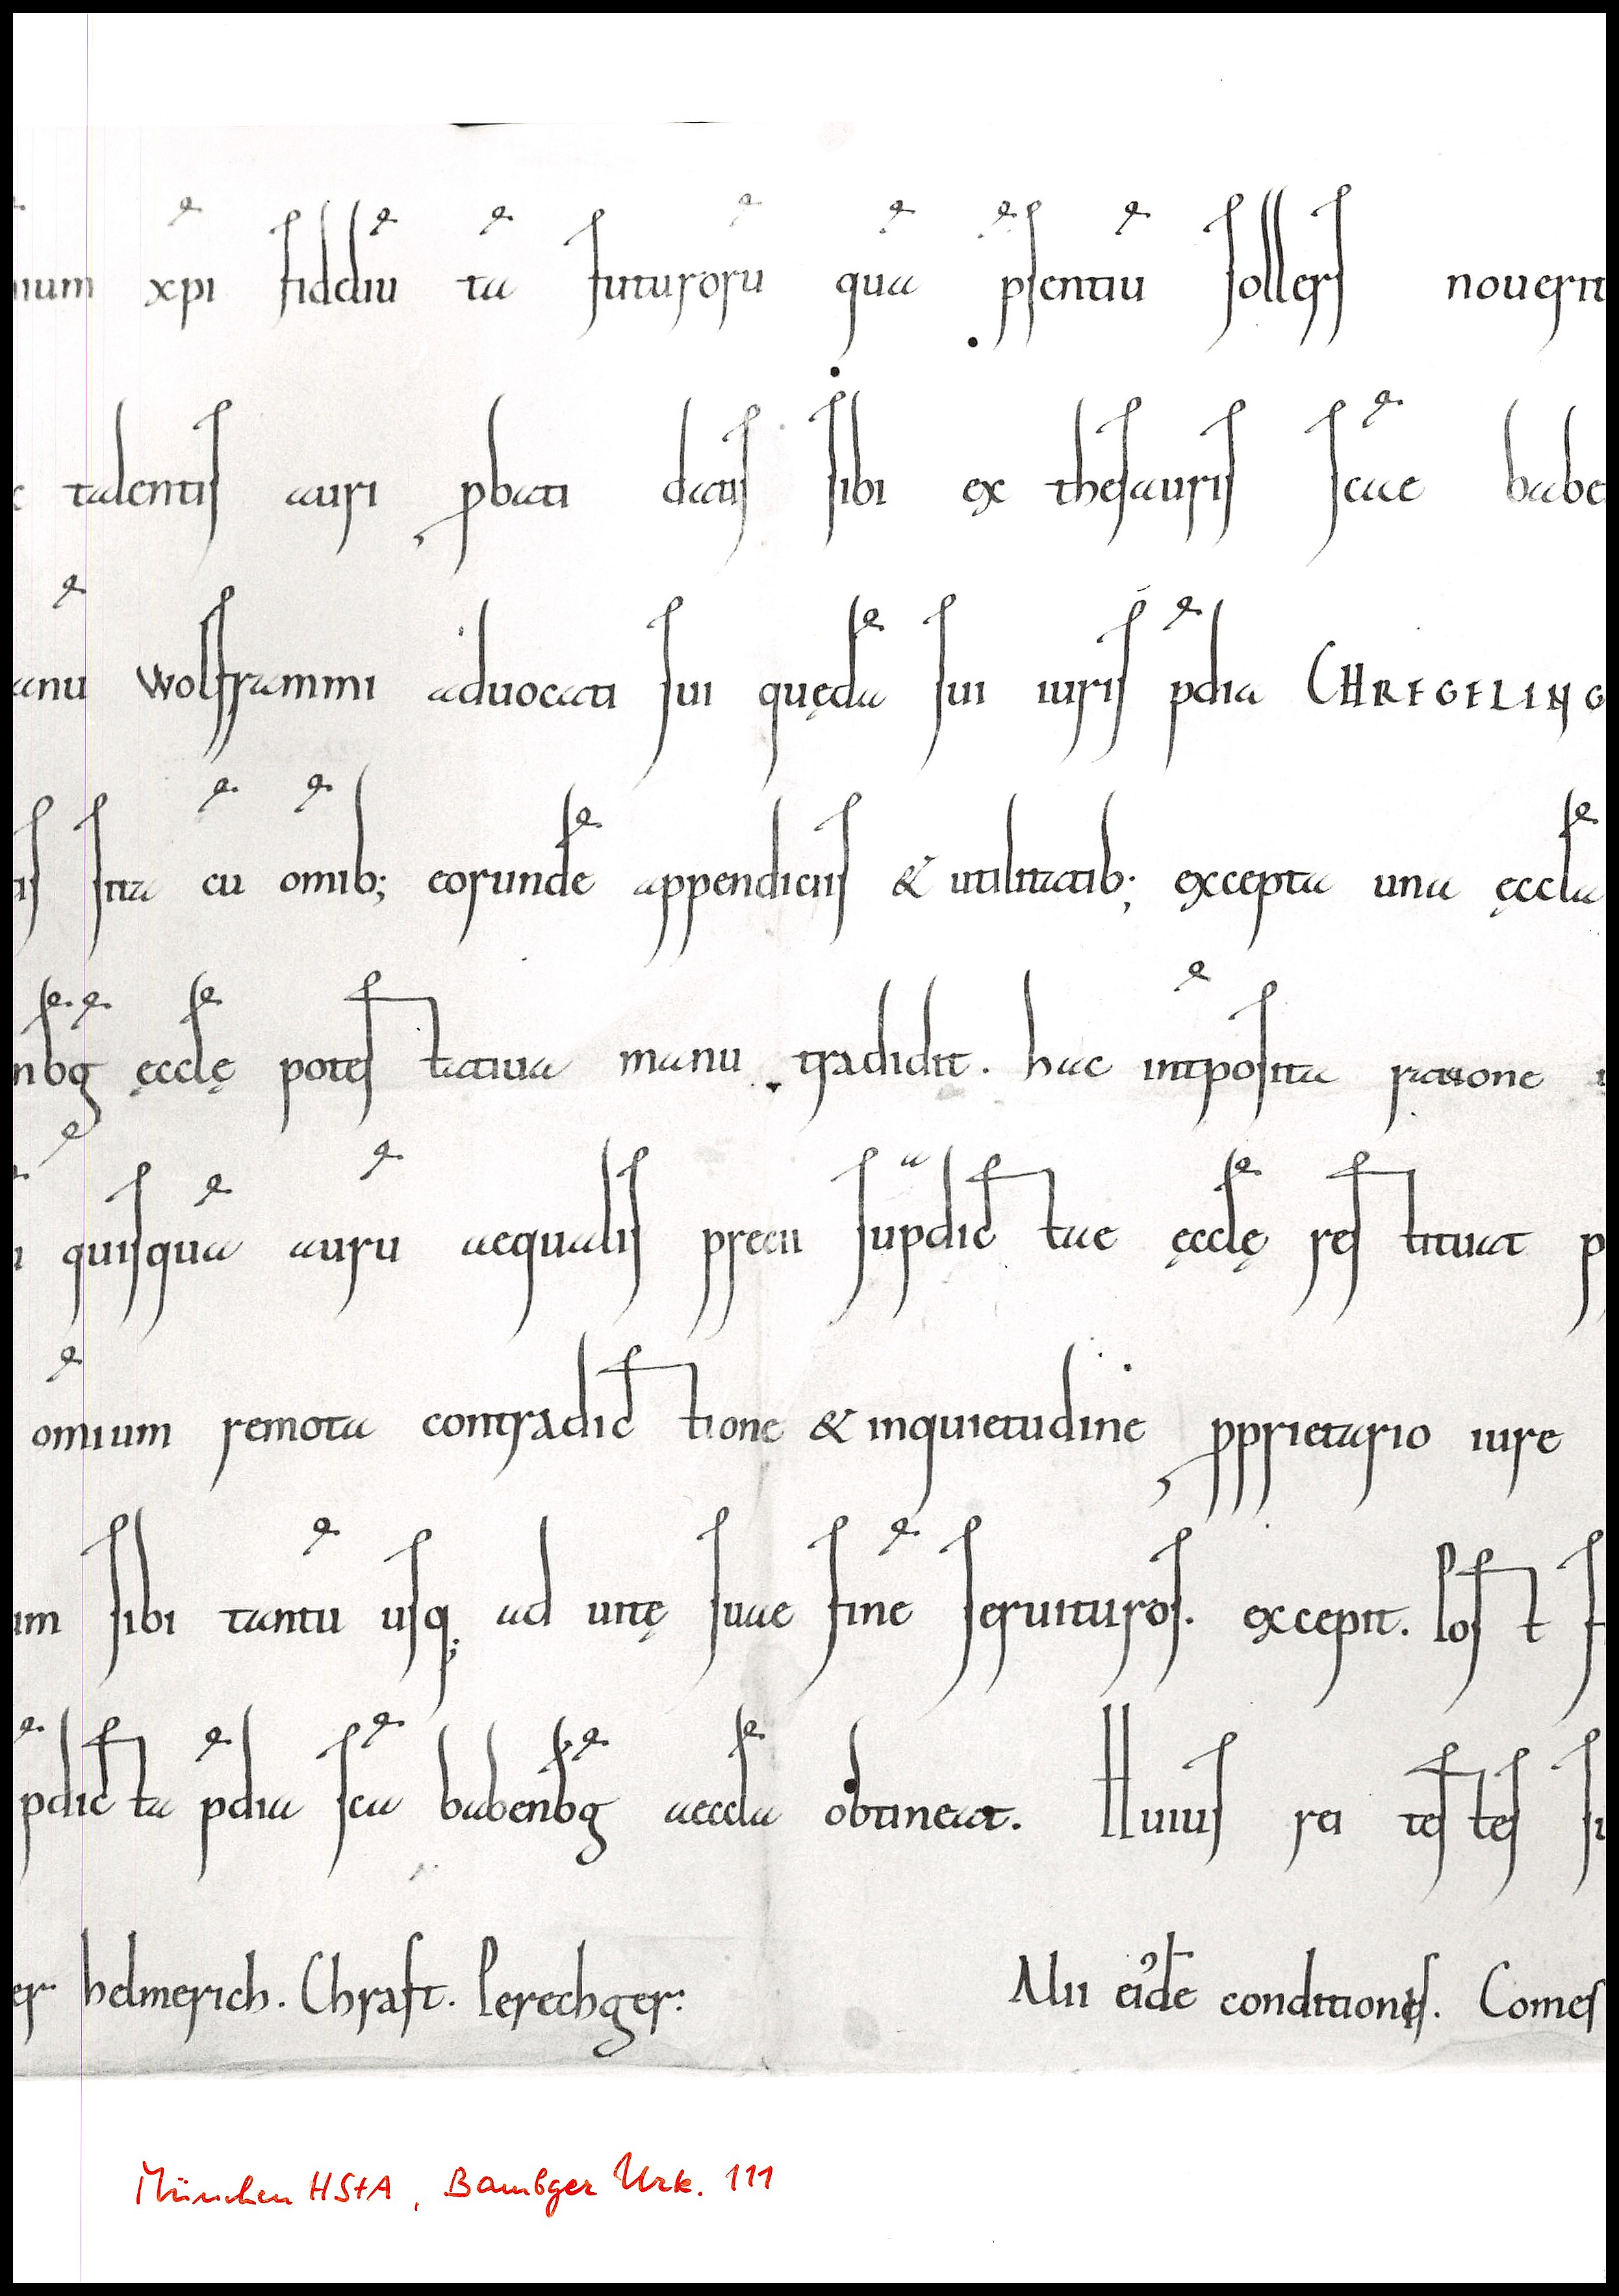 nium xpi fideliu ta futuroru qua psentiu sollers nouerit
talentis auri pbati datis sibi ex thesauris scae babe
anu Wolframmi aduocati sui quęda sui iuris pdia CHREGELING
sita cu omib; eorunde appendiciis & utilitatib; excepta una ęccla
nbg ęcclę potestatiua manu tradidit. hac intposita ratione
quisqua auru aequalis precii supdictae ęcclę restituat p
omium remota contradictione & inquietudine pprietario iure
um sibi tantu usq; ad uitę suae fine seruituros. excepit. Post
pdicta pdia sca babenbg aeccla obtineat. Huius rei testes
er helmerich. Chraft. Perechger. Alii eide conditionis. Comes
München HStA, Bambger Urk. 111